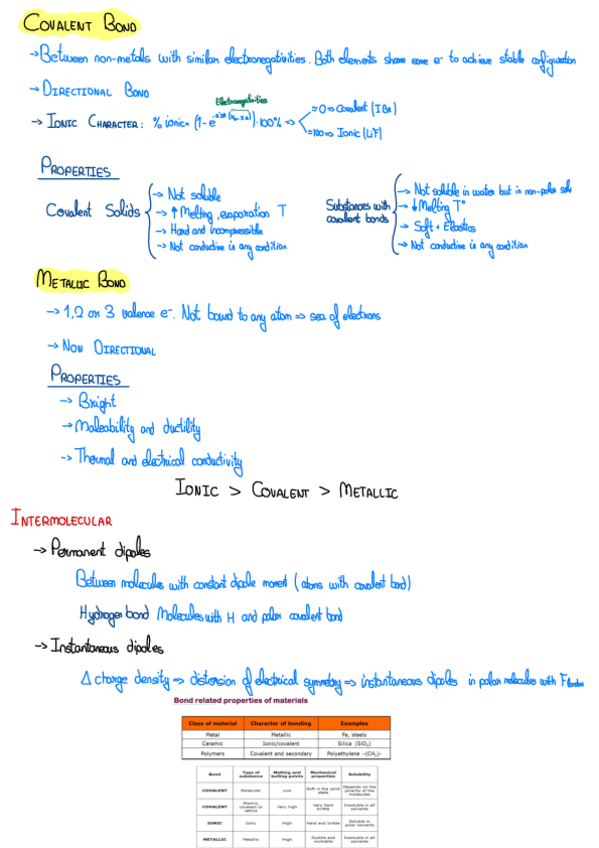 COVALENT BOND
→ Between non-metals with similar electronegativities. Both elements share some e⁻ to achieve stable configuration
→ DIRECTIONAL BOND
Electronegativities
→ IONIC CHARACTER: % ionic = (1 - e )·100% ⇒
=0 ⇒ Covalent
=100 ⇒ Ionic (LiF)
PROPERTIES
Covalent Solids
→ Not soluble
→ ↑ Melting, evaporation T
→ Hard and incompressible
→ Not conductive in any condition
Substances with covalent bonds
→ Not soluble in water but in non-polar
→ ↓ Melting Tº
→ Soft + Elastics
→ Not conductive in any condition
METALLIC BOND
→ 1,2 or 3 valence e⁻. Not bound to any atom ⇒ sea of electrons
→ NON DIRECTIONAL
PROPERTIES
→ Bright
→ Maleability and ductility
→ Thermal and electrical conductivity
IONIC > COVALENT > METALLIC
INTERMOLECULAR
→ Permanent dipoles
Between molecules with constant dipole moment (atoms with covalent bond)
Hydrogen bond Molecules with H and polar covalent bond
→ Instantaneous dipoles
Δ charge density ⇒ distorsion of electrical symmetry ⇒ instantaneous dipoles in polar molecules with F london
Bond related properties of materials
Class of material Character of bonding Examples
Metal Metallic Fe, steels
Ceramic Ionic/covalent Silica (SiO₂)
Polymers Covalent and secondary Polyethylene -(CH₂)-
Bond Type of substance Melting and boiling points Mechanical properties Solubility
COVALENT Molecular Low Soft in the solid state Depends on the polarity of the molecules
COVALENT Atomic, covalent or lattice Very high Very hard brittle Insoluble in all solvents
IONIC Ionic High Hard and brittle Soluble in polar solvents
METALLIC Metallic High Ductile and Insoluble in all solvents